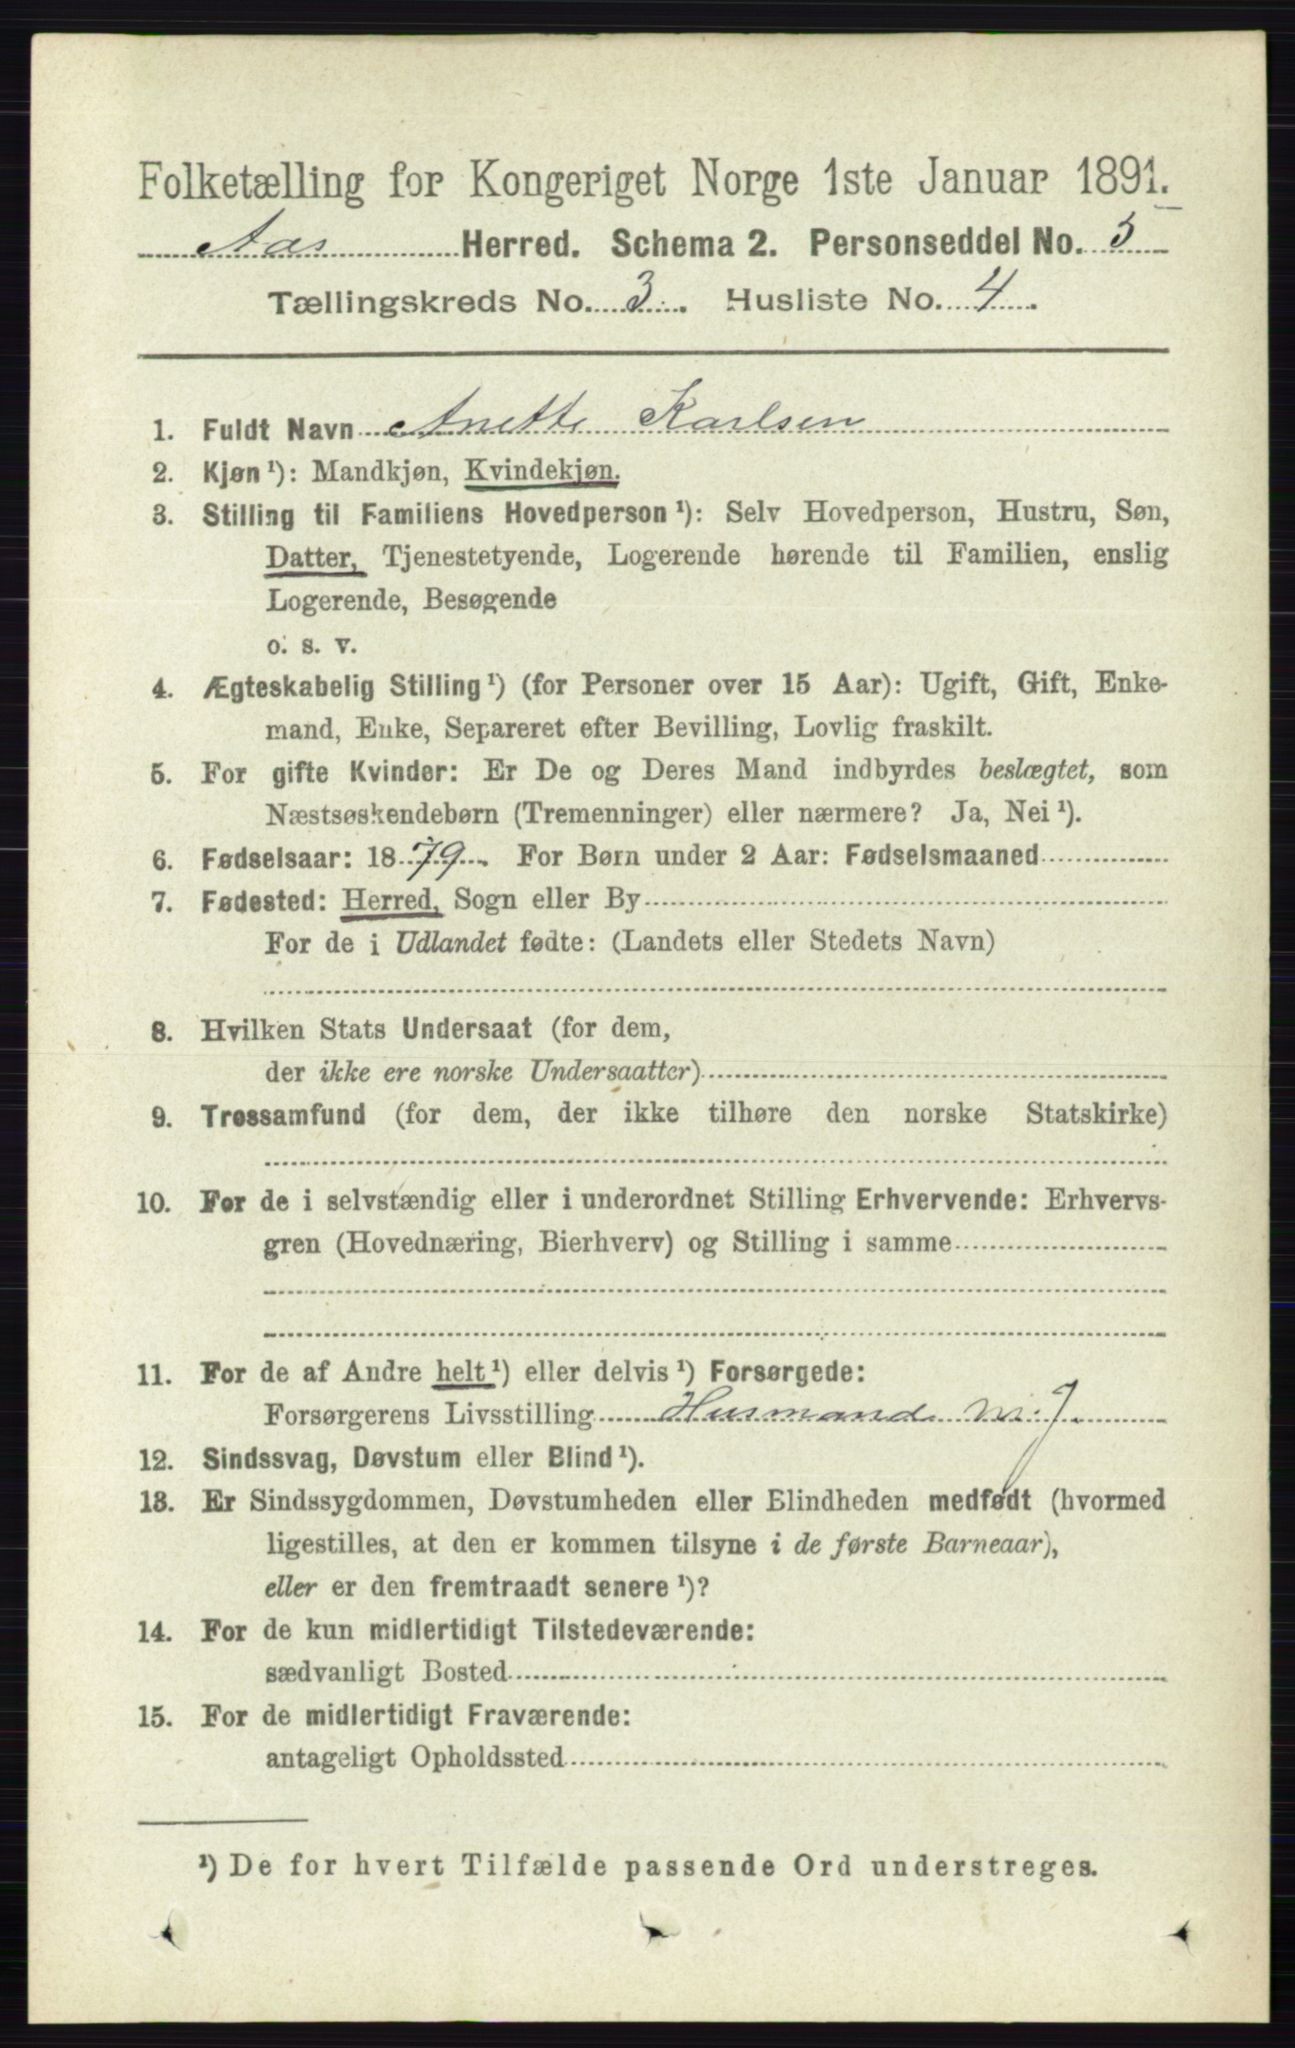 Folketælling for Kongeriget Norge 1ste Januar 1891.
Aas Herred. Schema 2. Personseddel No. 5
Tællingskreds No. 3. Husliste No. 4.
1. Fuldt Navn Anette Karlsen
2. Kjøn¹): Mandkjøn, Kvindekjøn.
3. Stilling til Familiens Hovedperson¹): Selv Hovedperson, Hustru, Søn,
Datter, Tjenestetyende, Logerende hørende til Familien, enslig
Logerende, Besøgende
o. s. v.
4. Ægteskabelig Stilling¹) (for Personer over 15 Aar): Ugift, Gift, Enke-
mand, Enke, Separeret efter Bevilling, Lovlig fraskilt.
5. For gifte Kvinder: Er De og Deres Mand indbyrdes beslægtet, som
Næstsøskendebørn (Tremenninger) eller nærmere? Ja, Nei¹).
6. Fødselsaar: 1879. For Børn under 2 Aar: Fødselsmaaned
7. Fødested: Herred, Sogn eller By
For de i Udlandet fødte: (Landets eller Stedets Navn)
8. Hvilken Stats Undersaat (for dem,
der ikke ere norske Undersaatter)
9. Trossamfund (for dem, der ikke tilhøre den norske Statskirke)
10. For de i selvstændig eller i underordnet Stilling Erhvervende: Erhvervs-
gren (Hovednæring, Bierhverv) og Stilling i samme
11. For de af Andre helt¹) eller delvis¹) Forsørgede:
Forsørgerens Livsstilling Husmand m. J.
12. Sindssvag, Døvstum eller Blind¹).
13. Er Sindssygdommen, Døvstumheden eller Blindheden medfødt (hvormed
ligestilles, at den er kommen tilsyne i de første Barneaar),
eller er den fremtraadt senere¹)?
14. For de kun midlertidigt Tilstedeværende:
sædvanligt Bosted
15. For de midlertidigt Fraværende:
antageligt Opholdssted
¹) De for hvert Tilfælde passende Ord understreges.